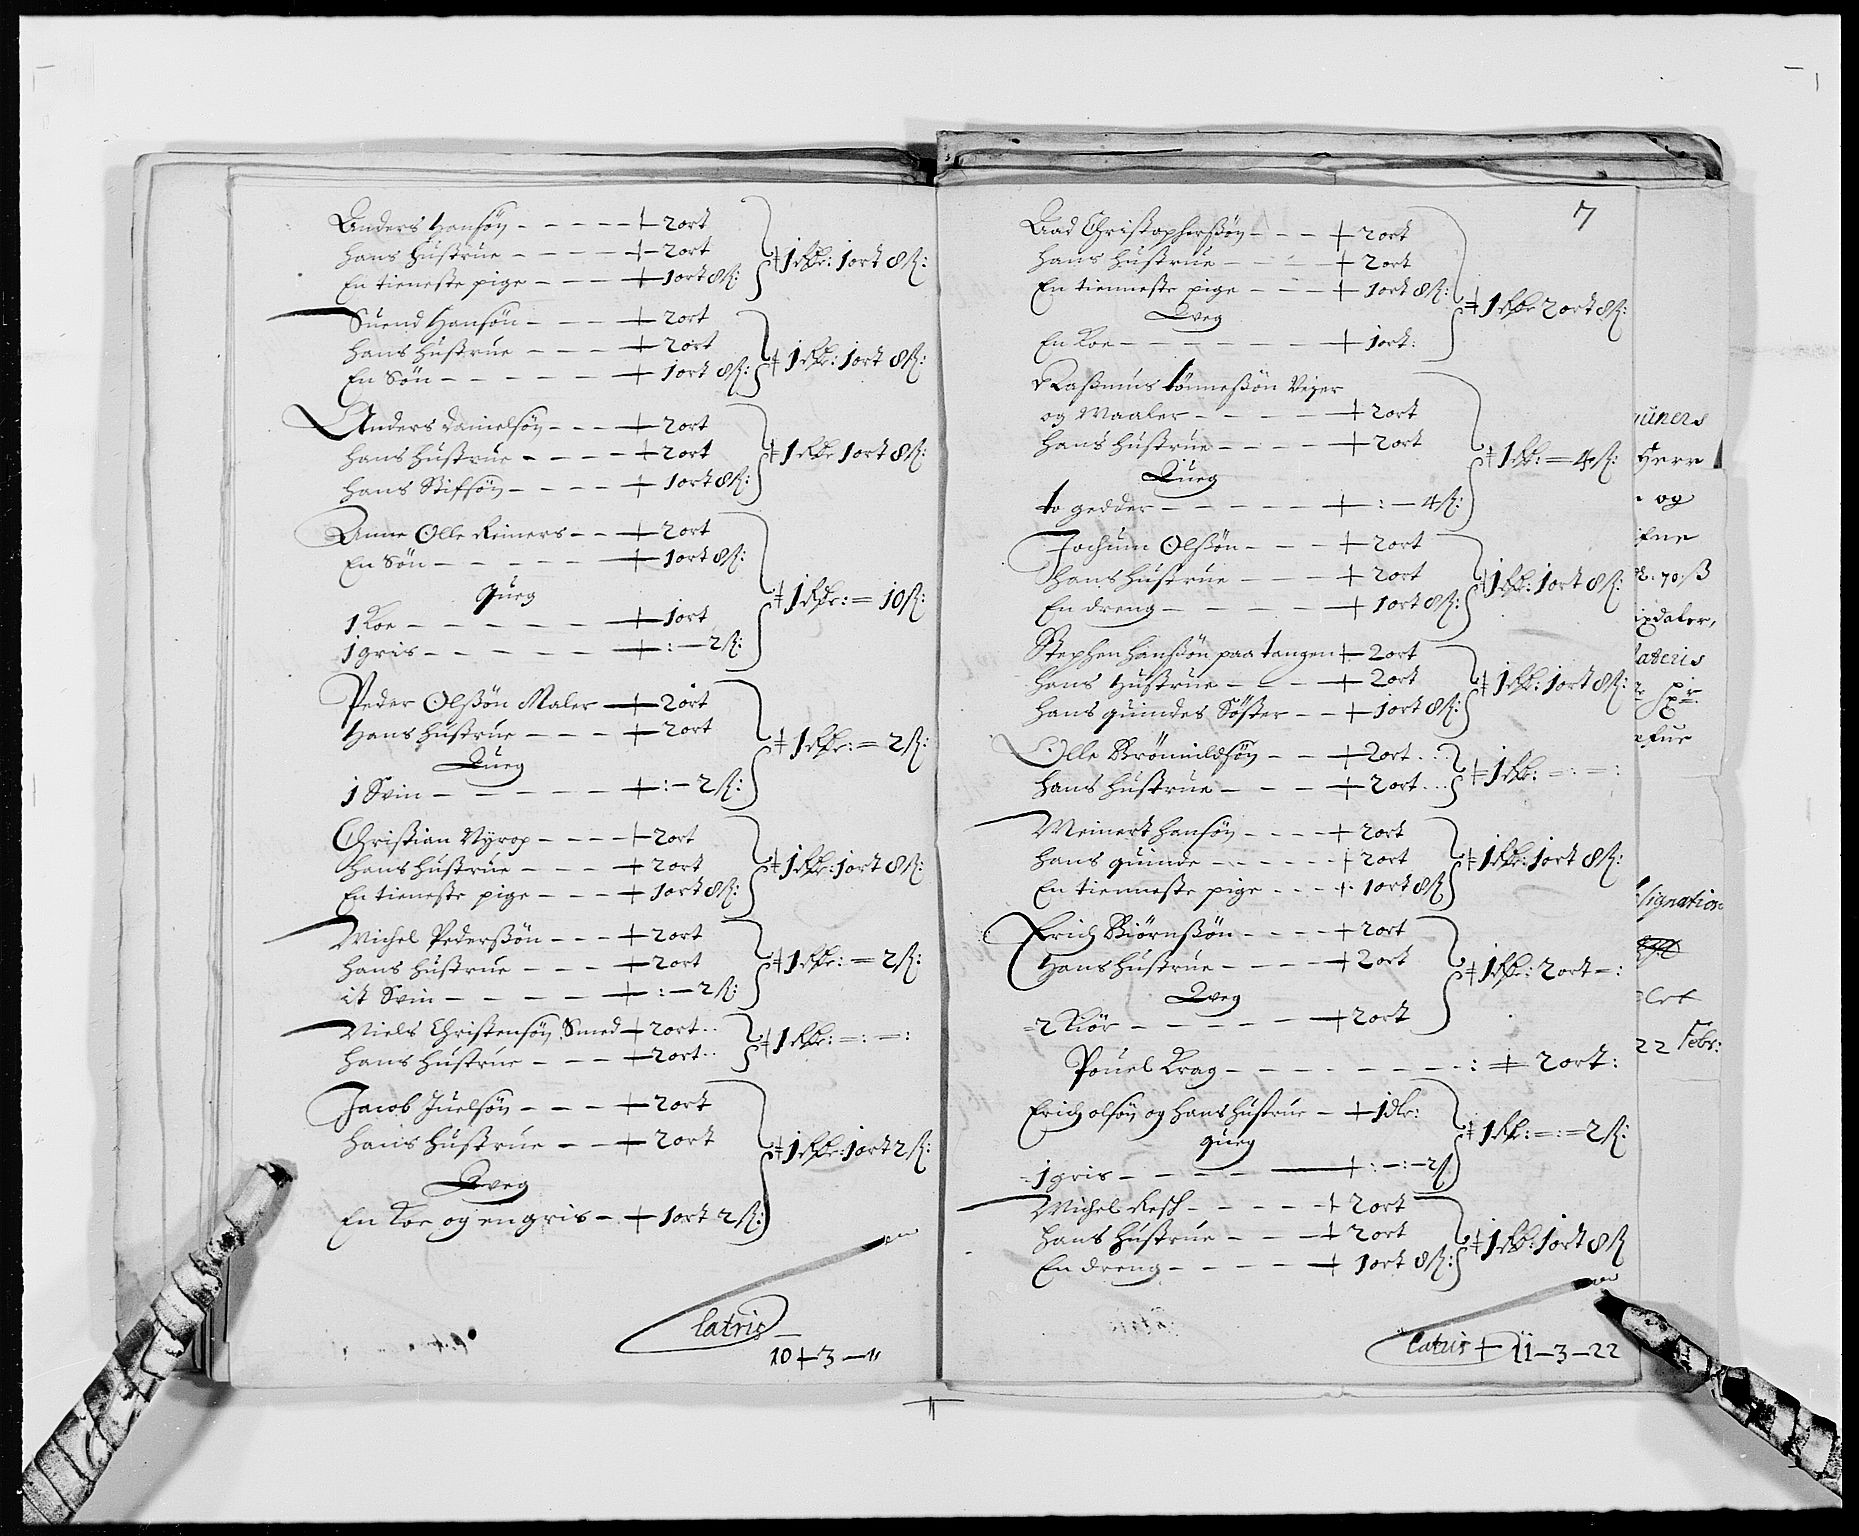 Anders Hansøn - - - - 2 ort
Hans Hustrue - - - - 2 ort
En tieneste pige - - - 1 ort 8 ß: 1 Rdr: 1 ort 8 ß:
Suend Hansøn - - - - 2 ort
Hans Hustrue - - - - 2 ort
En Søn - - - - - 1 ort 8 ß: 1 Rdr: 1 ort 8 ß:
Anders Danielsøn - - - 2 ort
Hans Hustrue - - - - 2 ort
Hans Stifsøn - - - - 1 ort 8 ß: 1 Rdr 1 ort 8 ß:
Anne Olle Reiners - - 2 ort
En Søn - - - - - 1 ort 8 ß:
Queg
1 Koe - - - - - - 1 ort
1 gris - - - - - : - 2 ß: 1 Rdr: = 10 ß:
Peder Olssøn Maler - 2 ort
Hans Hustrue - - - 2 ort
Queg
1 Svin - - - - - : - 2 ß: 1 Rdr: = 2 ß:
Christian Nyrop - - - - 2 ort
Hans Hustrue - - - - 2 ort
En tieneste pige - - - 1 ort 8 ß: 1 Rdr: 1 ort 8 ß:
Michel Pederssøn - - - 2 ort
Hans Hustrue - - - - 2 ort
it Svin - - - - - : - 2 ß: 1 Rdr: = 2 ß:
Niels Christensøn Smed - 2 ort
Hans Hustrue - - - 2 ort 1 Rdr: = : = :
Jacob Juelsøn - - - 2 ort
Hans Hustrue - - - 2 ort
Qveg
En Koe og en gris - - 1 ort 2 ß: 1 Rdr: 1 ort 2 ß:
latris
10 - 3 - 11
7
Aad Christophersøn - - - 2 ort
Hans Hustrue - - - - 2 ort
En tienneste pige - - - 1 ort 8 ß:
Qveg
En Koe - - - - - - - 1 ort: 1 Rdr 2 ort 8 ß:
Rassmus Tønnessøn Vejer
og Maaler - - - - - 2 ort
Hans Hustrue - - - - 2 ort
Queg
to gedder - - - - - : - 4 ß: 1 Rdr: = 4 ß:
Jochum Olssøn - - - 2 ort
Hans Hustrue - - - - 2 ort
En dreng - - - - - 1 ort 8 ß: 1 Rdr: 1 ort 8 ß:
Stephen Hanssøn paa tangen - 2 ort
Hans Hustrue - - - - 2 ort
Hans quindes Søster - - 1 ort 8 ß: 1 Rdr: 1 ort 8 ß:
Olle Brønnildsøn - - - 2 ort
Hans Hustrue - - - - 2 ort 1 Rdr: = : = :
Meinert Hansøn - - - - 2 ort
Hans quinde - - - - - 2 ort
En tienneste pige - - - 1 ort 8 ß 1 Rdr: 1 ort 8 ß:
Erich Biørnssøn - - - - 2 ort
Hans Hustrue - - - - 2 ort
Qveg
2 Kiør - - - - - 2 ort 1 Rdr: 2 ort = :
Pouel Krag - - - - - - - - : 2 ort:
Erich olsøn og Hans Hustrue - 1 dlr:
queg
1 gris - - - - - : - : - 2 ß 1 Rdr: = : = 2 ß:
Michel Resch - - - - - 2 ort
Hans Hustrue - - - - 2 ort
En dreng - - - - - 1 ort 8 ß: 1 Rdr: 1 ort 8 ß
latris 11 - 3 - 22
Herr
og
70 ß
ixdaler,
lateris
signation
22 Febr: